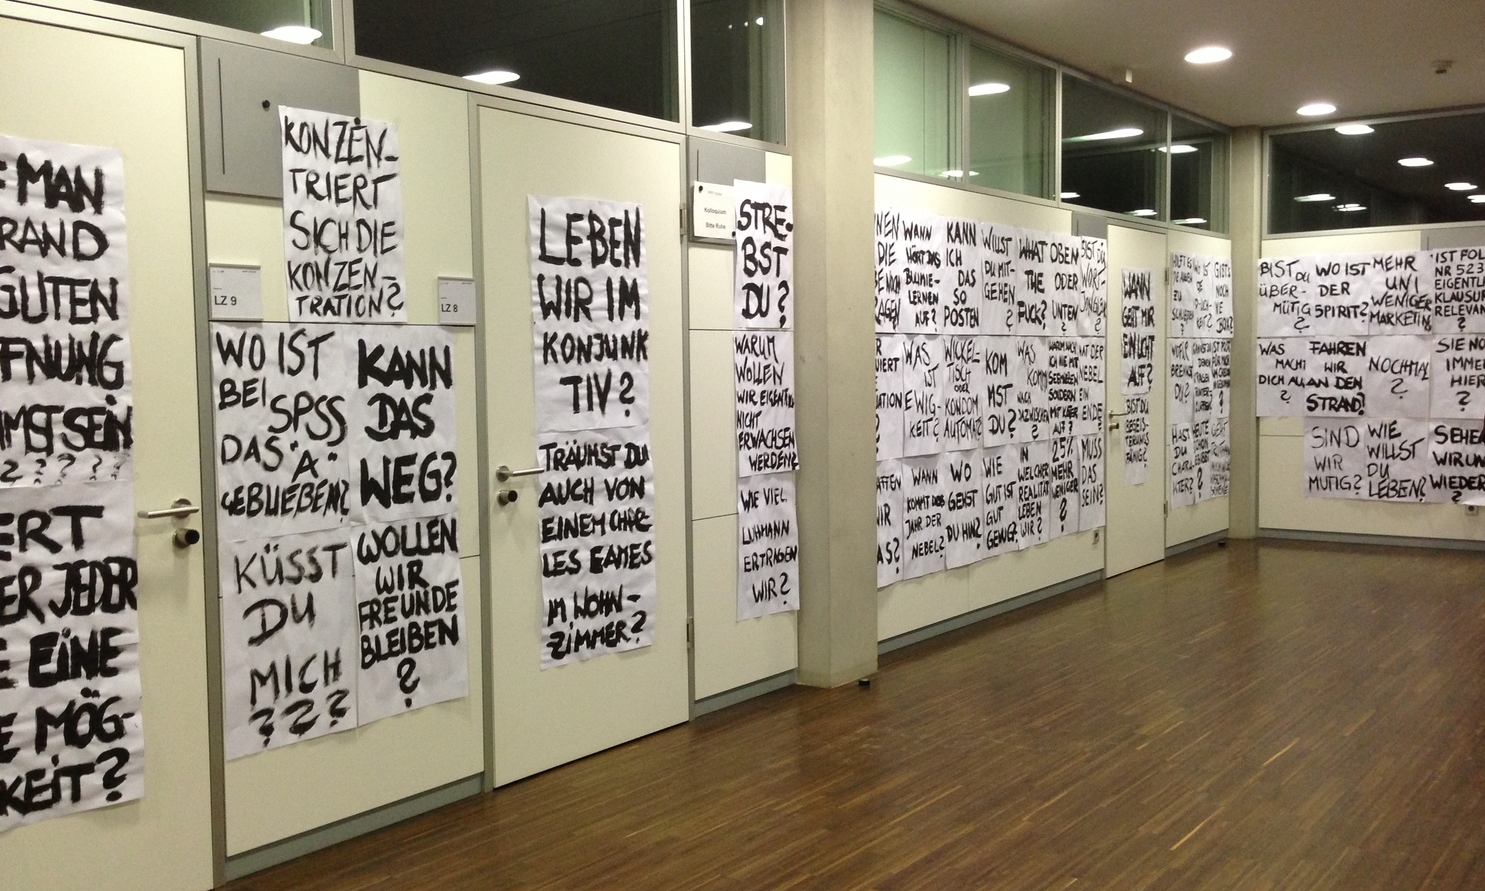 MAN
RAND
GUTEN
SEIN
? ? ? ? ?
ERT
ER JEDER
E EINE
E MÖG-
KEIT?
KONZEN-
TRIERT
SICH DIE
KONZEN-
TRATION?
LZ 9
LZ 8
WO IST
BEI SPSS
DAS "Ä"
GEBLIEBEN?
KANN
DAS
WEG?
KÜSST
DU
MICH
? ? ?
WOLLEN
WIR
FREUNDE
BLEIBEN
?
LEBEN
WIR IM
KONJUNK
TIV?
TRÄUMST DU
AUCH VON
EINEM CHAR-
LES EAMES
IM WOHN-
ZIMMER?
Kolloquium
Bitte Ruhe
STRE-
BST
DU?
WARUM
WOLLEN
WIR EIGENTLICH
NICHT
ERWACHSEN
WERDEN?
WIE VIEL
LUHMANN
ERTRAGEN
WIR?
WANN
HÖRT DAS
BULIMIE-
LERNEN
AUF?
KANN
ICH
DAS
SO
POSTEN
WILLST
DU MIT-
GEHEN
?
WHAT
THE
FUCK?
OBEN
ODER
UNTEN
?
WAS
IST
EWIG-
KEIT?
WICKEL-
TISCH
ODER
KONDOM
AUTOMAT?
KOM
MST
DU?
WAS
KOMMT
NACH
DAZWISCHEN
?
HAT DER
NEBEL
EIN
ENDE
?
WANN
KOMMT DAS
JAHR DER
NEBEL?
WO
GEHST
DU HIN?
WIE
GUT IST
GUT
GENUG?
IN
WELCHER
REALITÄT
LEBEN
WIR?
25%
MEHR
ODER
WENIGER
?
MUSS
DAS
SEIN?
WANN
GEHT MIR
EIN LICHT
AUF?
BIST DU
BEGEIS-
TERUNGS
FÄHIG?
HAST
DU
CHARA-
KTER?
BIST DU
ÜBER-
MÜTIG
?
WO IST
DER
SPIRIT?
MEHR
UNI
WENIGER
MARKETING
IST FOL
NR 523
EIGENTL
KLAUSUR
RELEVAN
?
WAS
MACHT
DICH AUS
FAHREN
WIR
AN DEN
STRAND?
NOCHMAL
?
SIE NO
IMMER
HIER
?
SIND
WIR
MUTIG?
WIE
WILLST
DU
LEBEN?
SEHEN
WIR UN
WIEDER
?